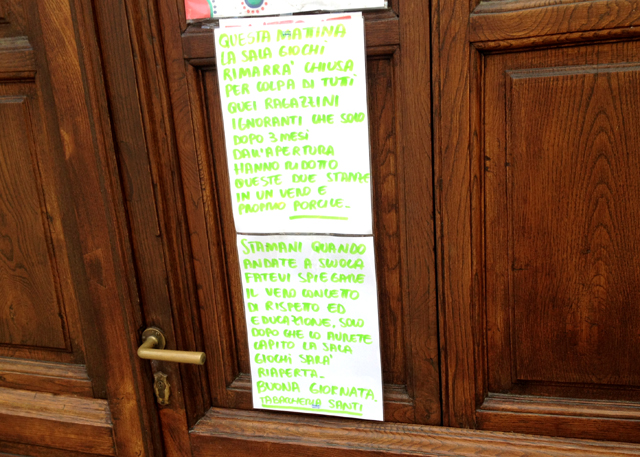 QUESTA MATTINA
LA SALA GIOCHI
RIMARRA' CHIUSA
PER COLPA DI TUTTI
QUEI RAGAZZINI
IGNORANTI CHE SOLO
DOPO 3 MESI
DALL'APERTURA
HANNO RIDOTTO
QUESTE DUE STANZE
IN UN VERO E
PROPRIO PORCILE_
STAMANI QUANDO
ANDATE A SCUOLA
FATEVI SPIEGARE
IL VERO CONCETTO
DI RISPETTO ED
EDUCAZIONE, SOLO
DOPO CHE LO AVRETE
CAPITO LA SALA
GIOCHI SARA'
RIAPERTA_
BUONA GIORNATA_
TABACCHERIA SANTI